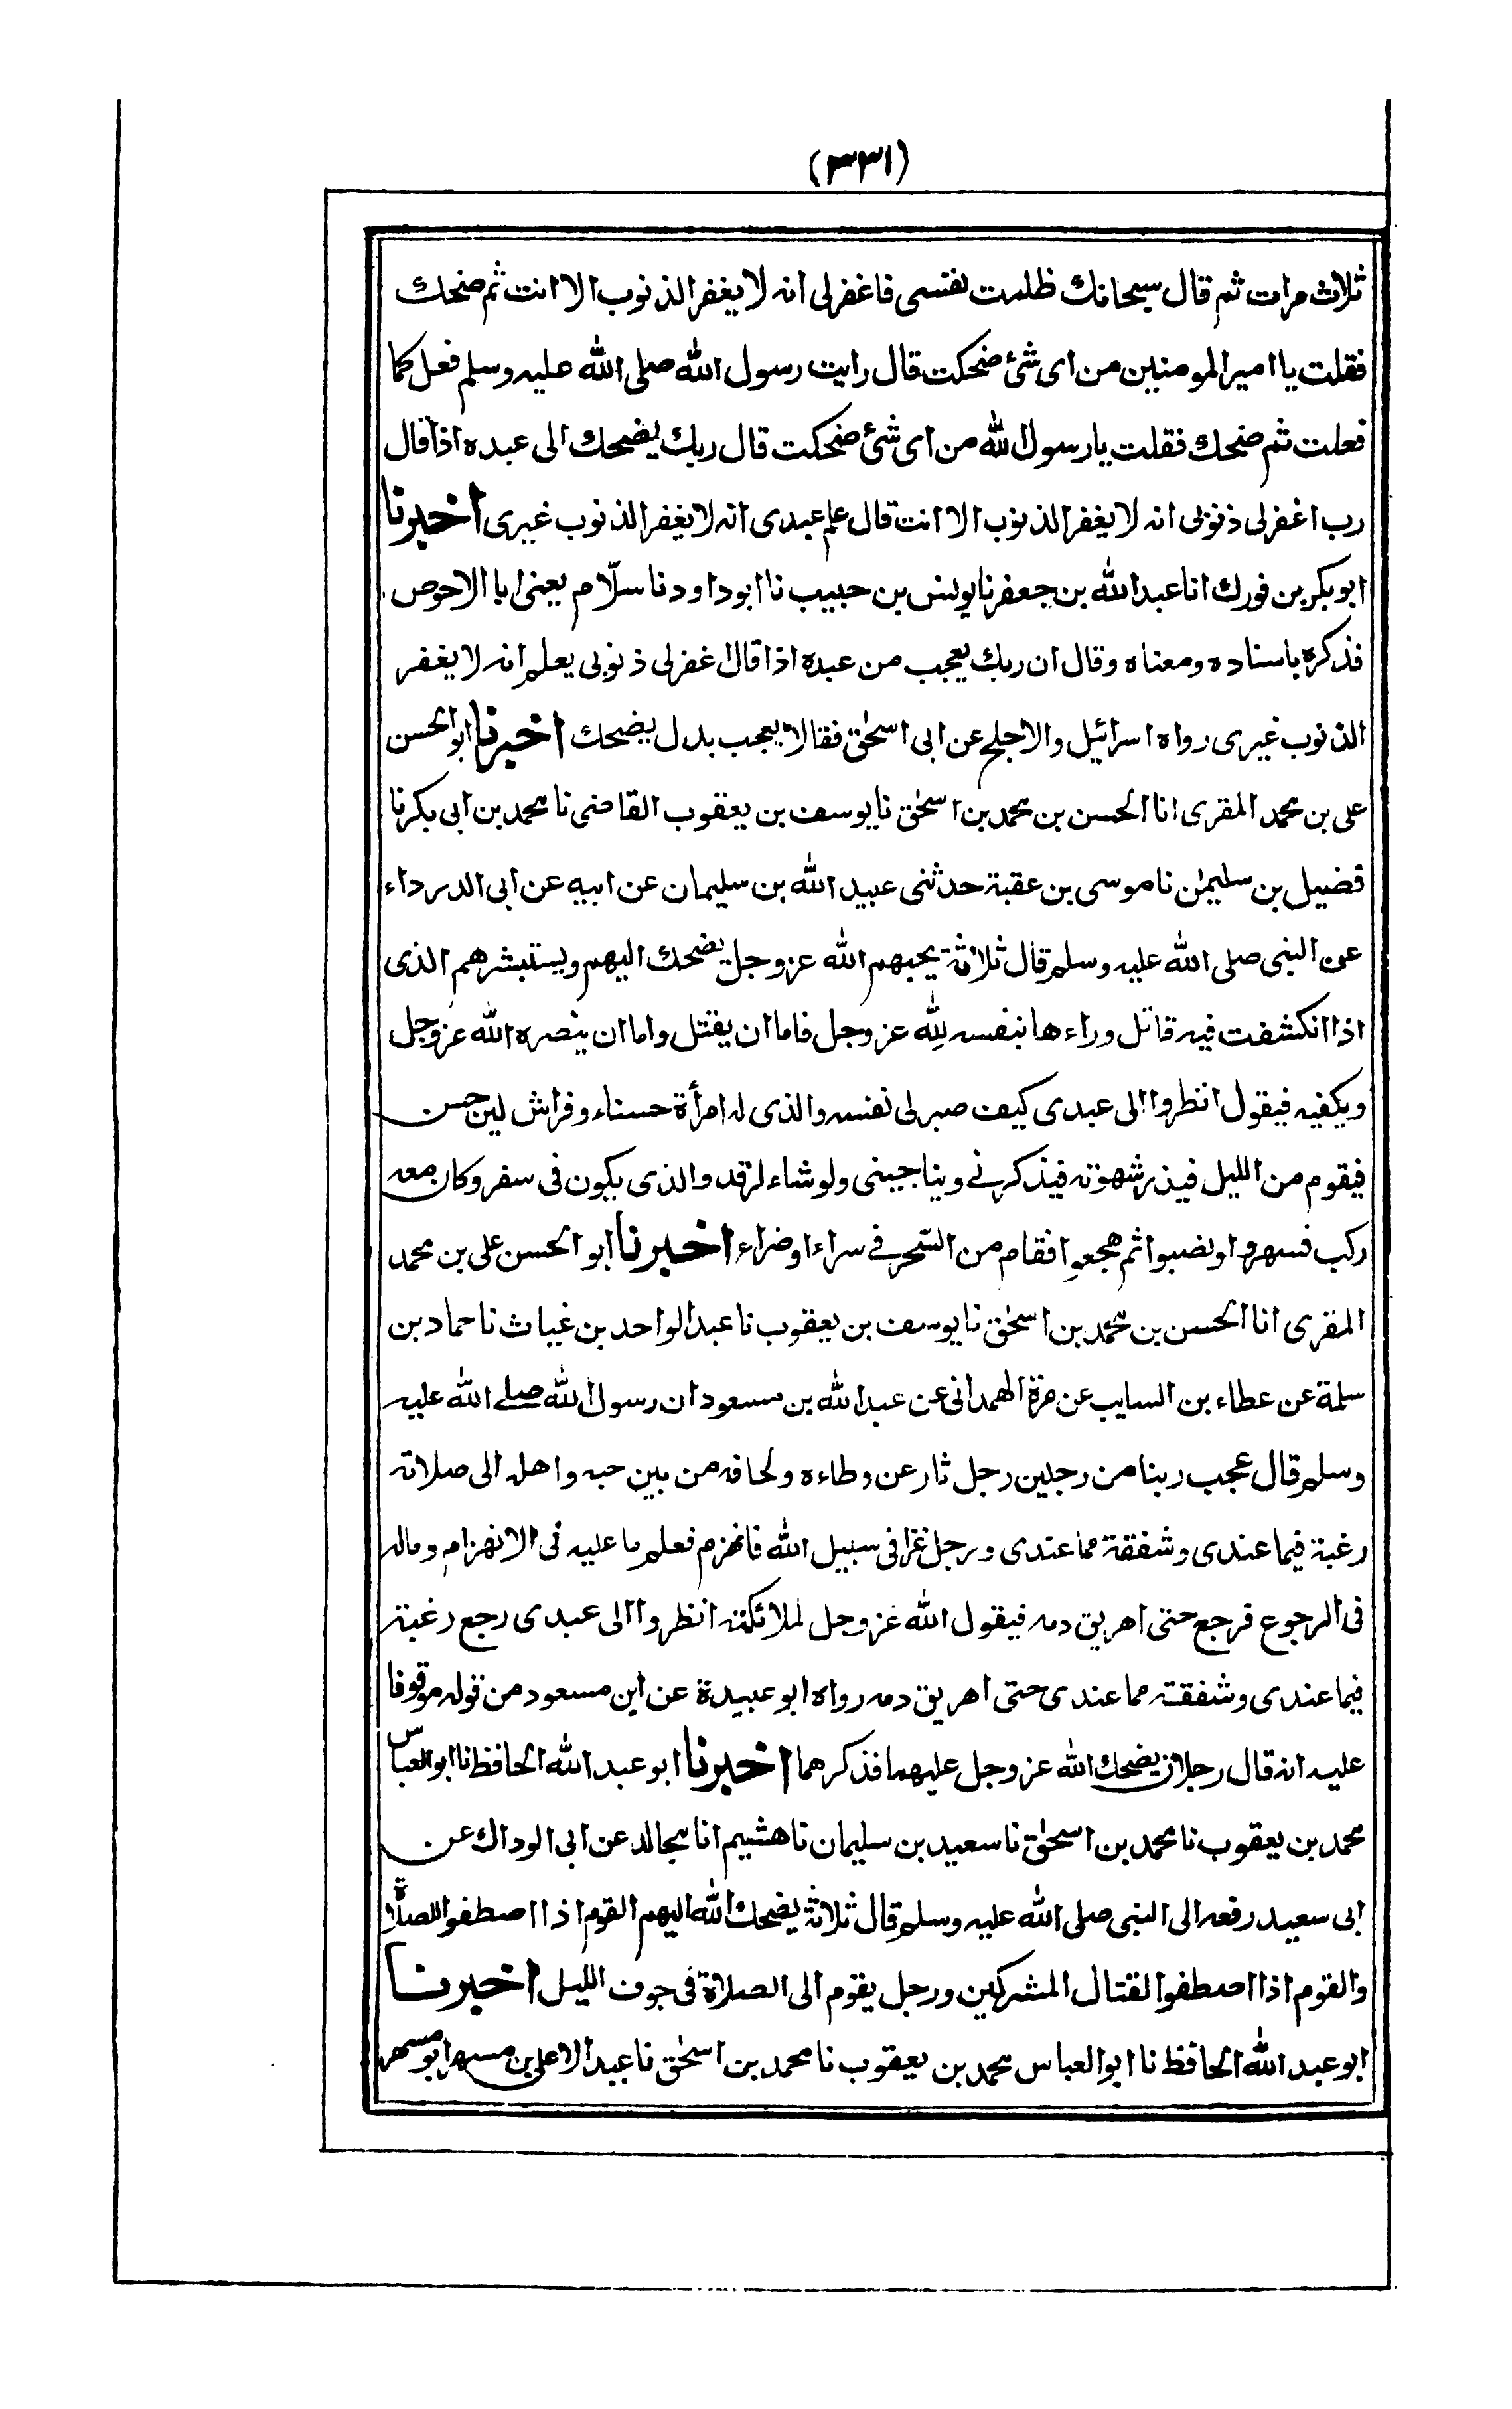 (٣٣١)
ثلاث مرات ثم قال سبحانك ظلمت نفسى فاغفرلى انه لا يغفر الذنوب الا انت ثم ضحك
فقلت يا امير المومنين من اى شئ ضحكت قال رايت رسول الله صلى الله عليه وسلم فعل كما
فعلت ثم ضحك فقلت يا رسول الله من اى شئ ضحكت قال ربك يضحك الى عبده اذا قال
رب اغفرلى ذنوبى انه لا يغفر الذنوب الا انت قال علم عبدى انه لا يغفر الذنوب غيرى اخبرنا
ابو بكر بن فورك انا عبد الله بن جعفر نا يونس بن حبيب نا ابو داود نا سلّام يعنى ابا الاحوص
فذكره باسناده ومعناه وقال ان ربك يعجب من عبده اذا قال اغفرلى ذنوبى يعلم انه لا يغفر
الذنوب غيرى رواه اسرائيل والاجلح عن ابى اسحٰق فقالا يعجب بدل يضحك اخبرنا ابو الحسن
على بن محمد المقرى انا الحسن بن محمد بن اسحٰق نا يوسف بن يعقوب القاضى نا محمد بن ابى بكر نا
فضيل بن سليمٰن نا موسى بن عقبة حدثنى عبيد الله بن سليمان عن ابيه عن ابى الدرداء
عن النبى صلى الله عليه وسلم قال ثلاثة يحبهم الله عزوجل يضحك اليهم ويستبشرهم الذى
اذا انكشفت فيه قاتل وراءها بنفسه لله عزوجل فاما ان يقتل واما ان ينصره الله عزوجل
ويكفيه فيقول انظروا الى عبدى كيف صبر لى نفسه والذى له امرأة حسناء وفراش لين حسن
فيقوم من الليل فيذر شهوته فيذكرنے ويناجينى ولو شاء لرقد والذى يكون فى سفر وكان معه
ركب فسهروا ونصبوا ثم هجعوا فقام من السّحر فے سراء او ضراء اخبرنا ابو الحسن على بن محمد
المقرى انا الحسن بن محمد بن اسحٰق نا يوسف بن يعقوب نا عبد الواحد بن غياث نا حماد بن
سلمة عن عطاء بن السايب عن مرة الهمدانى عن عبد الله بن مسعود ان رسول الله صلے الله عليه
وسلم قال عجب ربنا من رجلين رجل ثار عن وطاءه ولحافه من بين حبه واهله الى صلاته
رغبة فيما عندى وشفقة مما عندى ورجل غزا فى سبيل الله فانهزم فعلم ما عليه فى الانهزام وماله
فى الرجوع فرجع حتى اهريق دمه فيقول الله عزوجل لملائكته انظروا الى عبدى رجع رغبة
فيما عندى وشفقة مما عندى حتى اهريق دمه رواه ابو عبيدة عن ابن مسعود من قوله موقوفا
عليه انه قال رجلان يضحك الله عزوجل عليهما فذكرهما اخبرنا ابو عبد الله الحافظ نا ابو العباس
محمد بن يعقوب نا محمد بن اسحٰق نا سعيد بن سليمان نا هشيم انا مجالد عن ابى الوداك عن
ابى سعيد رفعه الى النبى صلى الله عليه وسلم قال ثلاثة يضحك الله اليهم القوم اذا اصطفوا للصلاة
والقوم اذا اصطفوا لقتال المشركين ورجل يقوم الى الصلاة فى جوف الليل اخبرنا
ابو عبد الله الحافظ نا ابو العباس محمد بن يعقوب نا محمد بن اسحٰق نا عبد الاعلى بن مسهر ابو مسهر